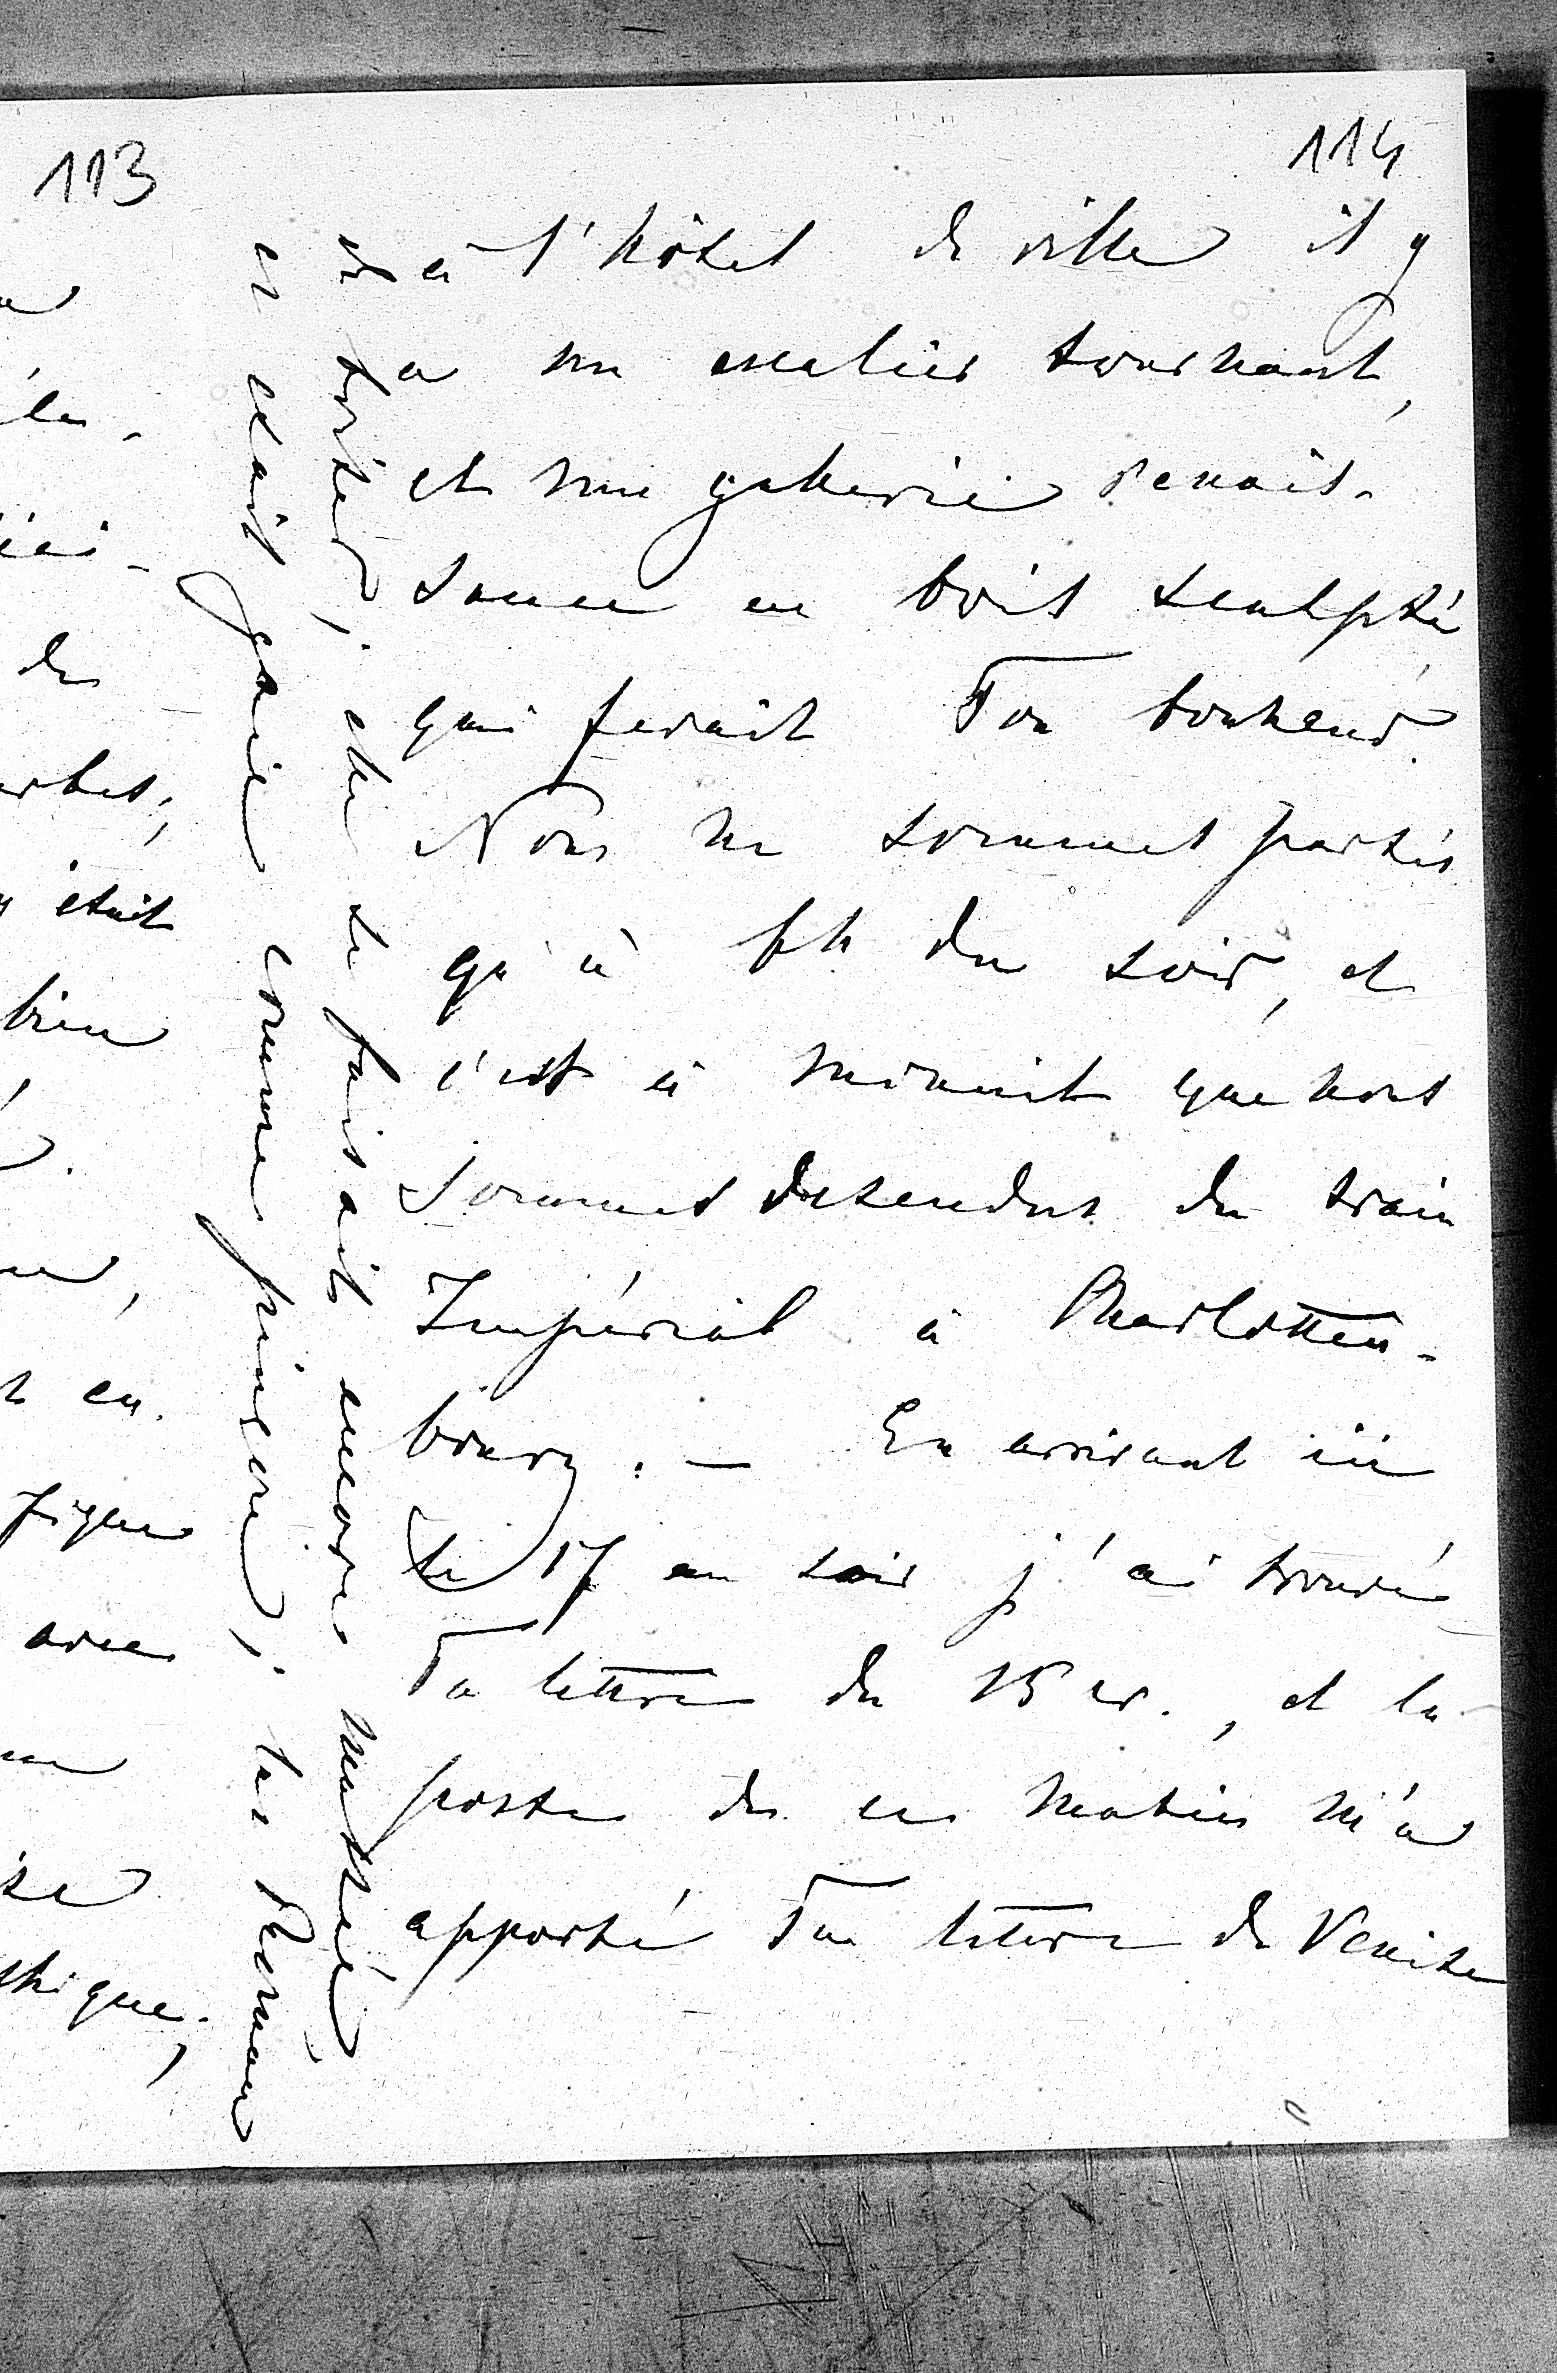 113
114
à l'hôtel de ville il y
a un escalier tournant,
et une gallerie renais-
sance en bois sculpté
qui ferait Ton bonheur.
Nous ne sommes partis
qu'à 6h du soir, et
c'est à minuit que nous
sommes descendus du train
Impérial à Charlotten-
bourg. — En arrivant ici
le 17 au soir j'ai trouvé
Ta lettre du 15 cr., et la
poste de ce matin m'a
apporté Ta lettre de Venise
elle se faisait encore
et était gaie comme ; les
la.
de
était
bien
en.
figure
avec